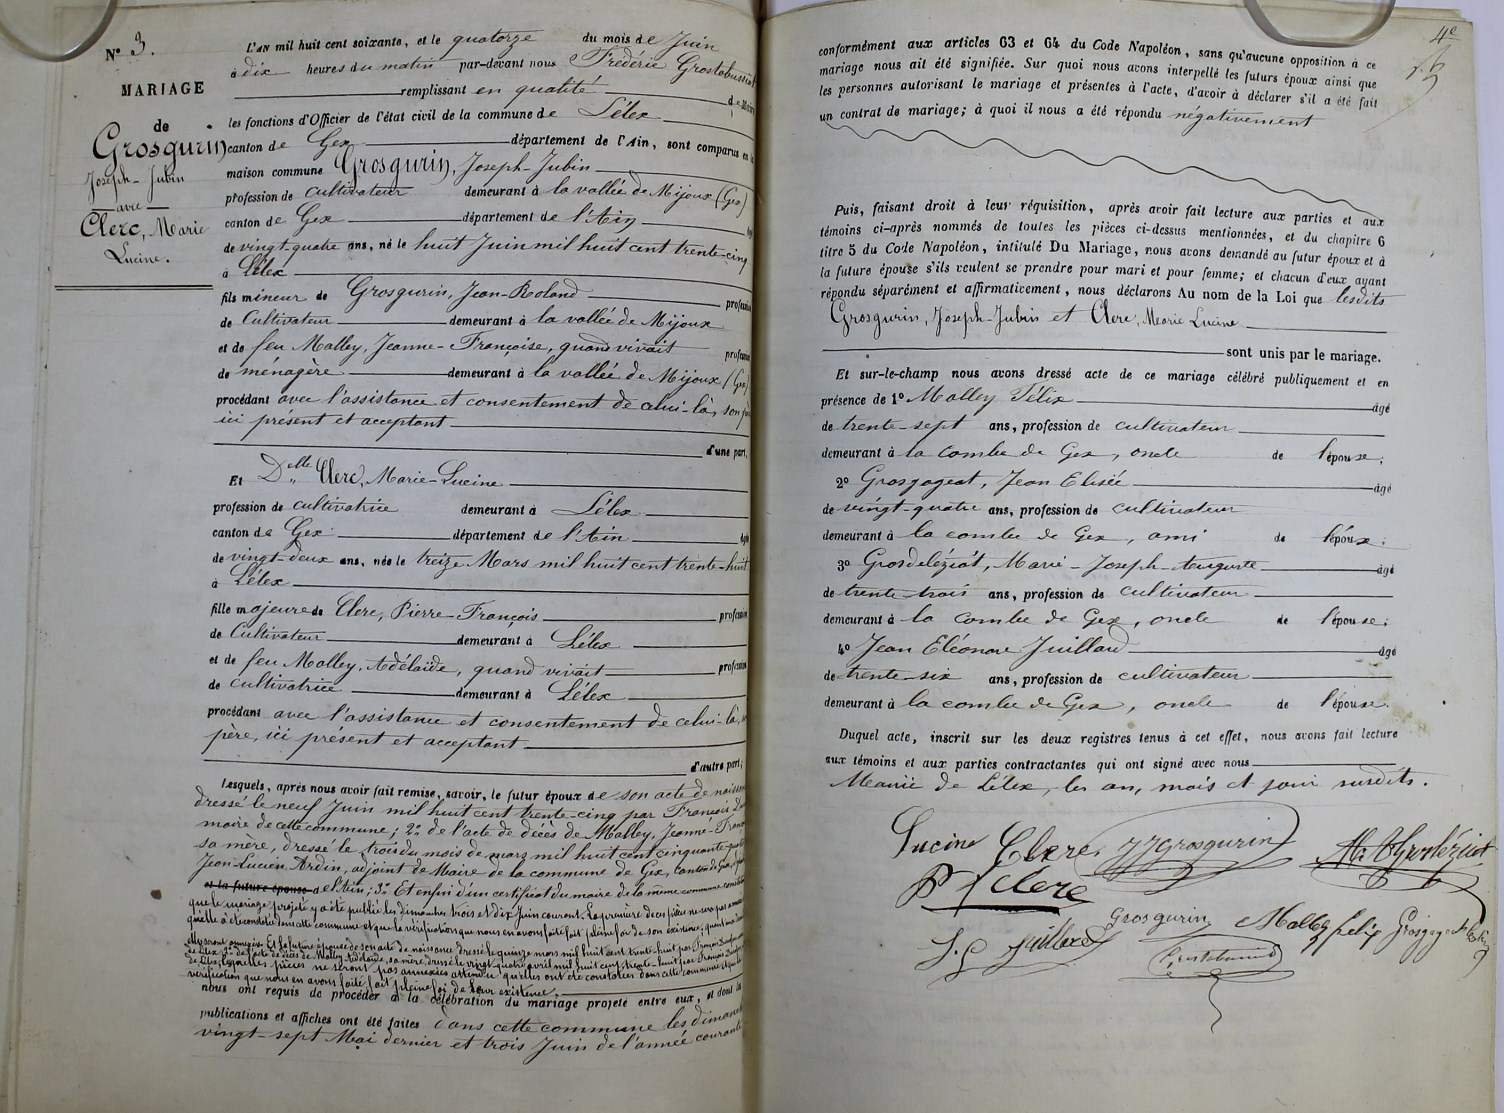 N° 3.
MARIAGE
de
Grosgurin
Joseph-Jubin
avec
Clerc, Marie
Lucine.
L'AN mil huit cent soixante, et le quatorze du mois de Juin
à dix heures du matin par-devant nous Frédéric Grostabussiat
remplissant en qualité de Maire
les fonctions d'Officier de l'état civil de la commune de Lélex
canton de Gex département de l'Ain, sont comparus en la
maison commune Grosgurin, Joseph-Jubin
profession de cultivateur demeurant à la vallée de Mijoux (Gex)
canton de Gex département de l'Ain
de vingt-quatre ans, né le huit Juin mil huit cent trente-cinq
à Lélex
fils mineur de Grosgurin, Jean-Roland profession
de Cultivateur demeurant à la vallée de Mijoux
et de feu Malley, Jeanne-Françoise, quand vivait profession
de ménagère demeurant à la vallée de Mijoux (Gex)
procédant avec l'assistance et consentement de celui-là, son père
ici présent et acceptant
d'une part,
Et Delle Clerc, Marie-Lucine
profession de cultivatrice demeurant à Lélex
canton de Gex département de l'Ain âgée
de vingt-deux ans, née le treize Mars mil huit cent trente-huit
à Lélex
fille majeure de Clerc, Pierre-François profession
de Cultivateur demeurant à Lélex
et de feu Malley, Adélaïde, quand vivait profession
de cultivatrice demeurant à Lélex
procédant avec l'assistance et consentement de celui-là,
père, ici présent et acceptant
d'autre part;
Lesquels, après nous avoir fait remise, savoir, le futur époux de son acte de naissance
dressé le neuf Juin mil huit cent trente-cinq par François
maire de cette commune; 2° de l'acte de décès de Malley, Jeanne-Franç
sa mère, dressé le trois du mois de mars mil huit cent cinquante
Jean-Lucien Ardin, adjoint de Maire de la commune de Gex, canton de Gex,
et la future épouse de l'Ain; 3° Et enfin d'un certificat du maire de la même commune
que le mariage projeté y a été publié les dimanches trois et dix Juin courant. La première de ces pièces ne sera pas
qu'elle a été constatée dans cette commune et que la vérification que nous en avons fait fait pleine foi de son existence; quant aux
elles sont annexées. Et la future épouse de son acte de naissance dressé le quinze mars mil huit cent trente-huit par François
de Lélex, 2° de l'acte de décès de Malley Adélaïde, sa mère, dressé le vingt-quatre avril mil huit cent trente-huit par François
de Lélex, lesquelles pièces ne seront pas annexées attendu qu'elles ont été constatées dans cette commune et que la
vérification que nous en avons faite fait pleine foi de leur existence,
nous ont requis de procéder à la célébration du mariage projeté entre eux, et dont les
publications et affiches ont été faites dans cette commune les dimanches
vingt-sept Mai dernier et trois Juin de l'année courante
4e
conformément aux articles 63 et 64 du Code Napoléon, sans qu'aucune opposition à ce
mariage nous ait été signifiée. Sur quoi nous avons interpellé les futurs époux ainsi que
les personnes autorisant le mariage et présentes à l'acte, d'avoir à déclarer s'il a été fait
un contrat de mariage; à quoi il nous a été répondu négativement
Puis, faisant droit à leur réquisition, après avoir fait lecture aux parties et aux
témoins ci-après nommés de toutes les pièces ci-dessus mentionnées, et du chapitre 6
titre 5 du Code Napoléon, intitulé Du Mariage, nous avons demandé au futur époux et à
la future épouse s'ils veulent se prendre pour mari et pour femme; et chacun d'eux ayant
répondu séparément et affirmativement, nous déclarons Au nom de la Loi que lesdits
Grosgurin, Joseph-Jubin et Clerc, Marie Lucine
sont unis par le mariage.
Et sur-le-champ nous avons dressé acte de ce mariage célébré publiquement et en
présence de 1° Malley Félix âgé
de trente-sept ans, profession de cultivateur
demeurant à la combe de Gex, oncle de l'épouse;
2° Grosgogeat, Jean Elisée âgé
de vingt-quatre ans, profession de cultivateur
demeurant à la combe de Gex, ami de l'époux;
3° Grosdelézéat, Marie-Joseph-Auguste âgé
de trente-trois ans, profession de cultivateur
demeurant à la combe de Gex, oncle de l'épouse;
4° Jean Eléonore Juillard âgé
de trente-six ans, profession de cultivateur
demeurant à la combe de Gex, oncle de l'épouse.
Duquel acte, inscrit sur les deux registres tenus à cet effet, nous avons fait lecture
aux témoins et aux parties contractantes qui ont signé avec nous
Mairie de Lélex, les an, mois et jour susdits.
Lucine Clerc JJ Grosgurin
P F Clerc
Grosgurin Malley felix
J. E Juillard